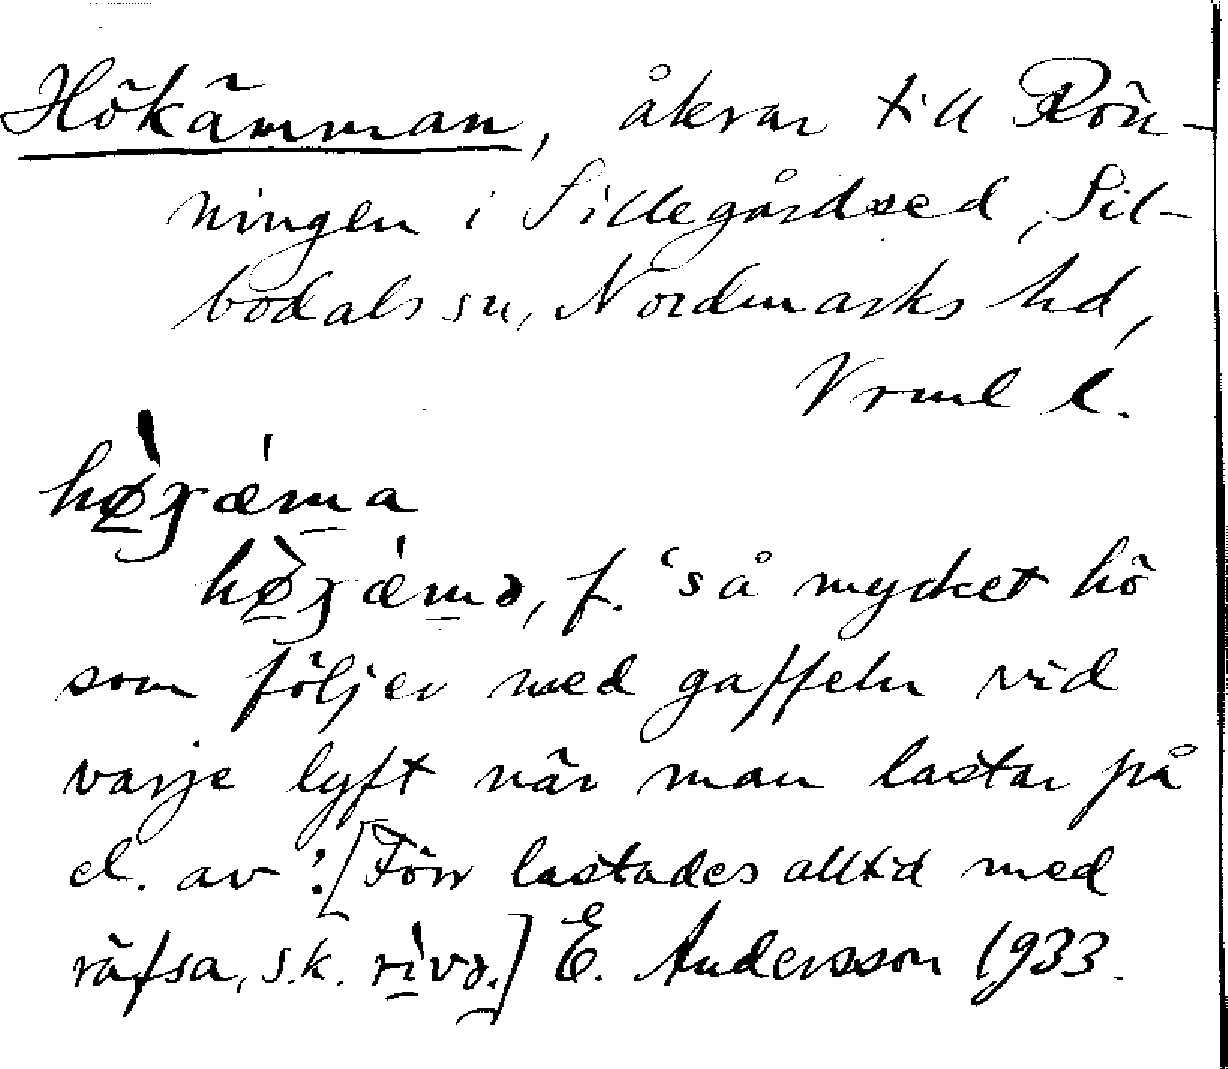 Hökämman, åkrar till Rön-
ningen i Sillegårdsed, Sil-
bodals sn, Nordmarks hd,
Vrml l.
hø̀ɟǽma
hø̀ɟǽmə, f. 'så mycket hö
som följer med gaffeln vid
varje lyft när man lastar på
el. av'. [Förr lastades alltid med
räfsa, s.k. rìvə.] E. Andersson 1933.